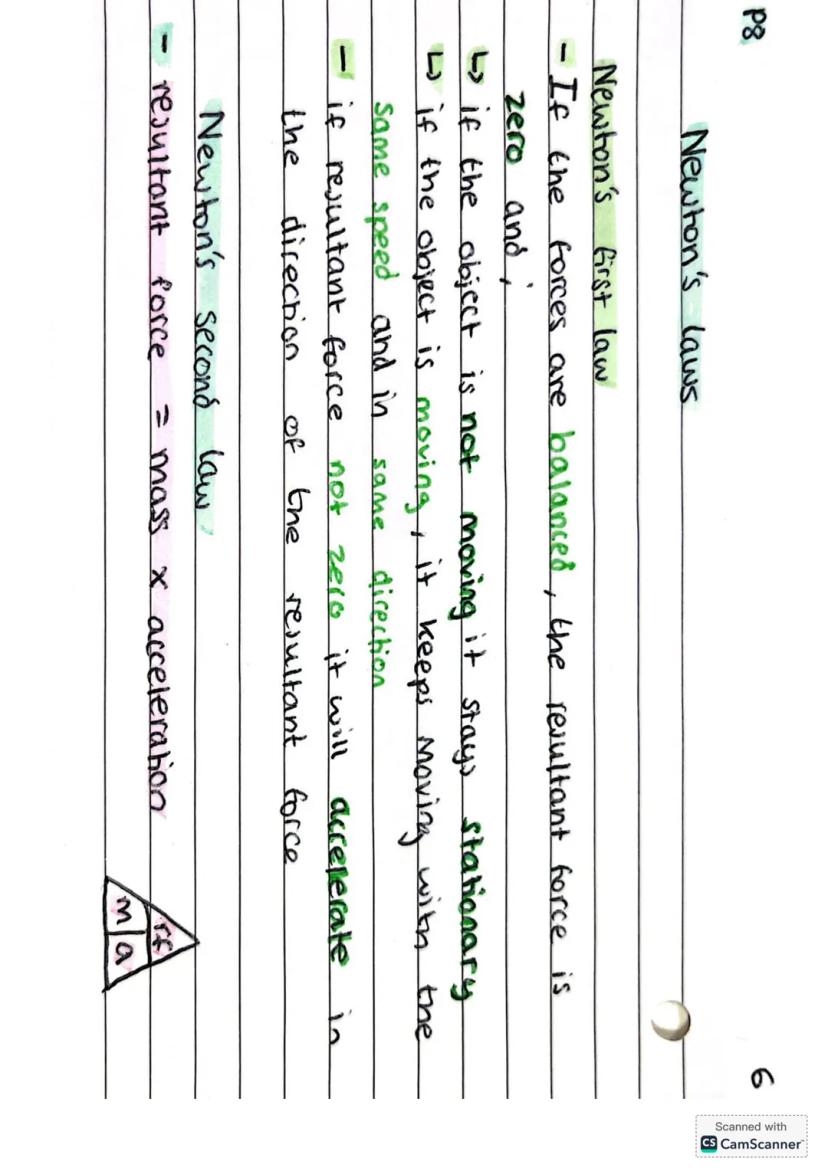 P8
6
Newton's laws
Newton's first law
- If the forces are balanced, the resultant force is
zero and;
↳ if the object is not moving it stays stationary
↳ if the object is moving, it keeps moving with the
same speed and in same direction
- if resultant force not zero it will accelerate in
the direction of the resultant force
Newton's second law
- resultant force = mass x acceleration
rf
m a
Scanned with
CS CamScanner